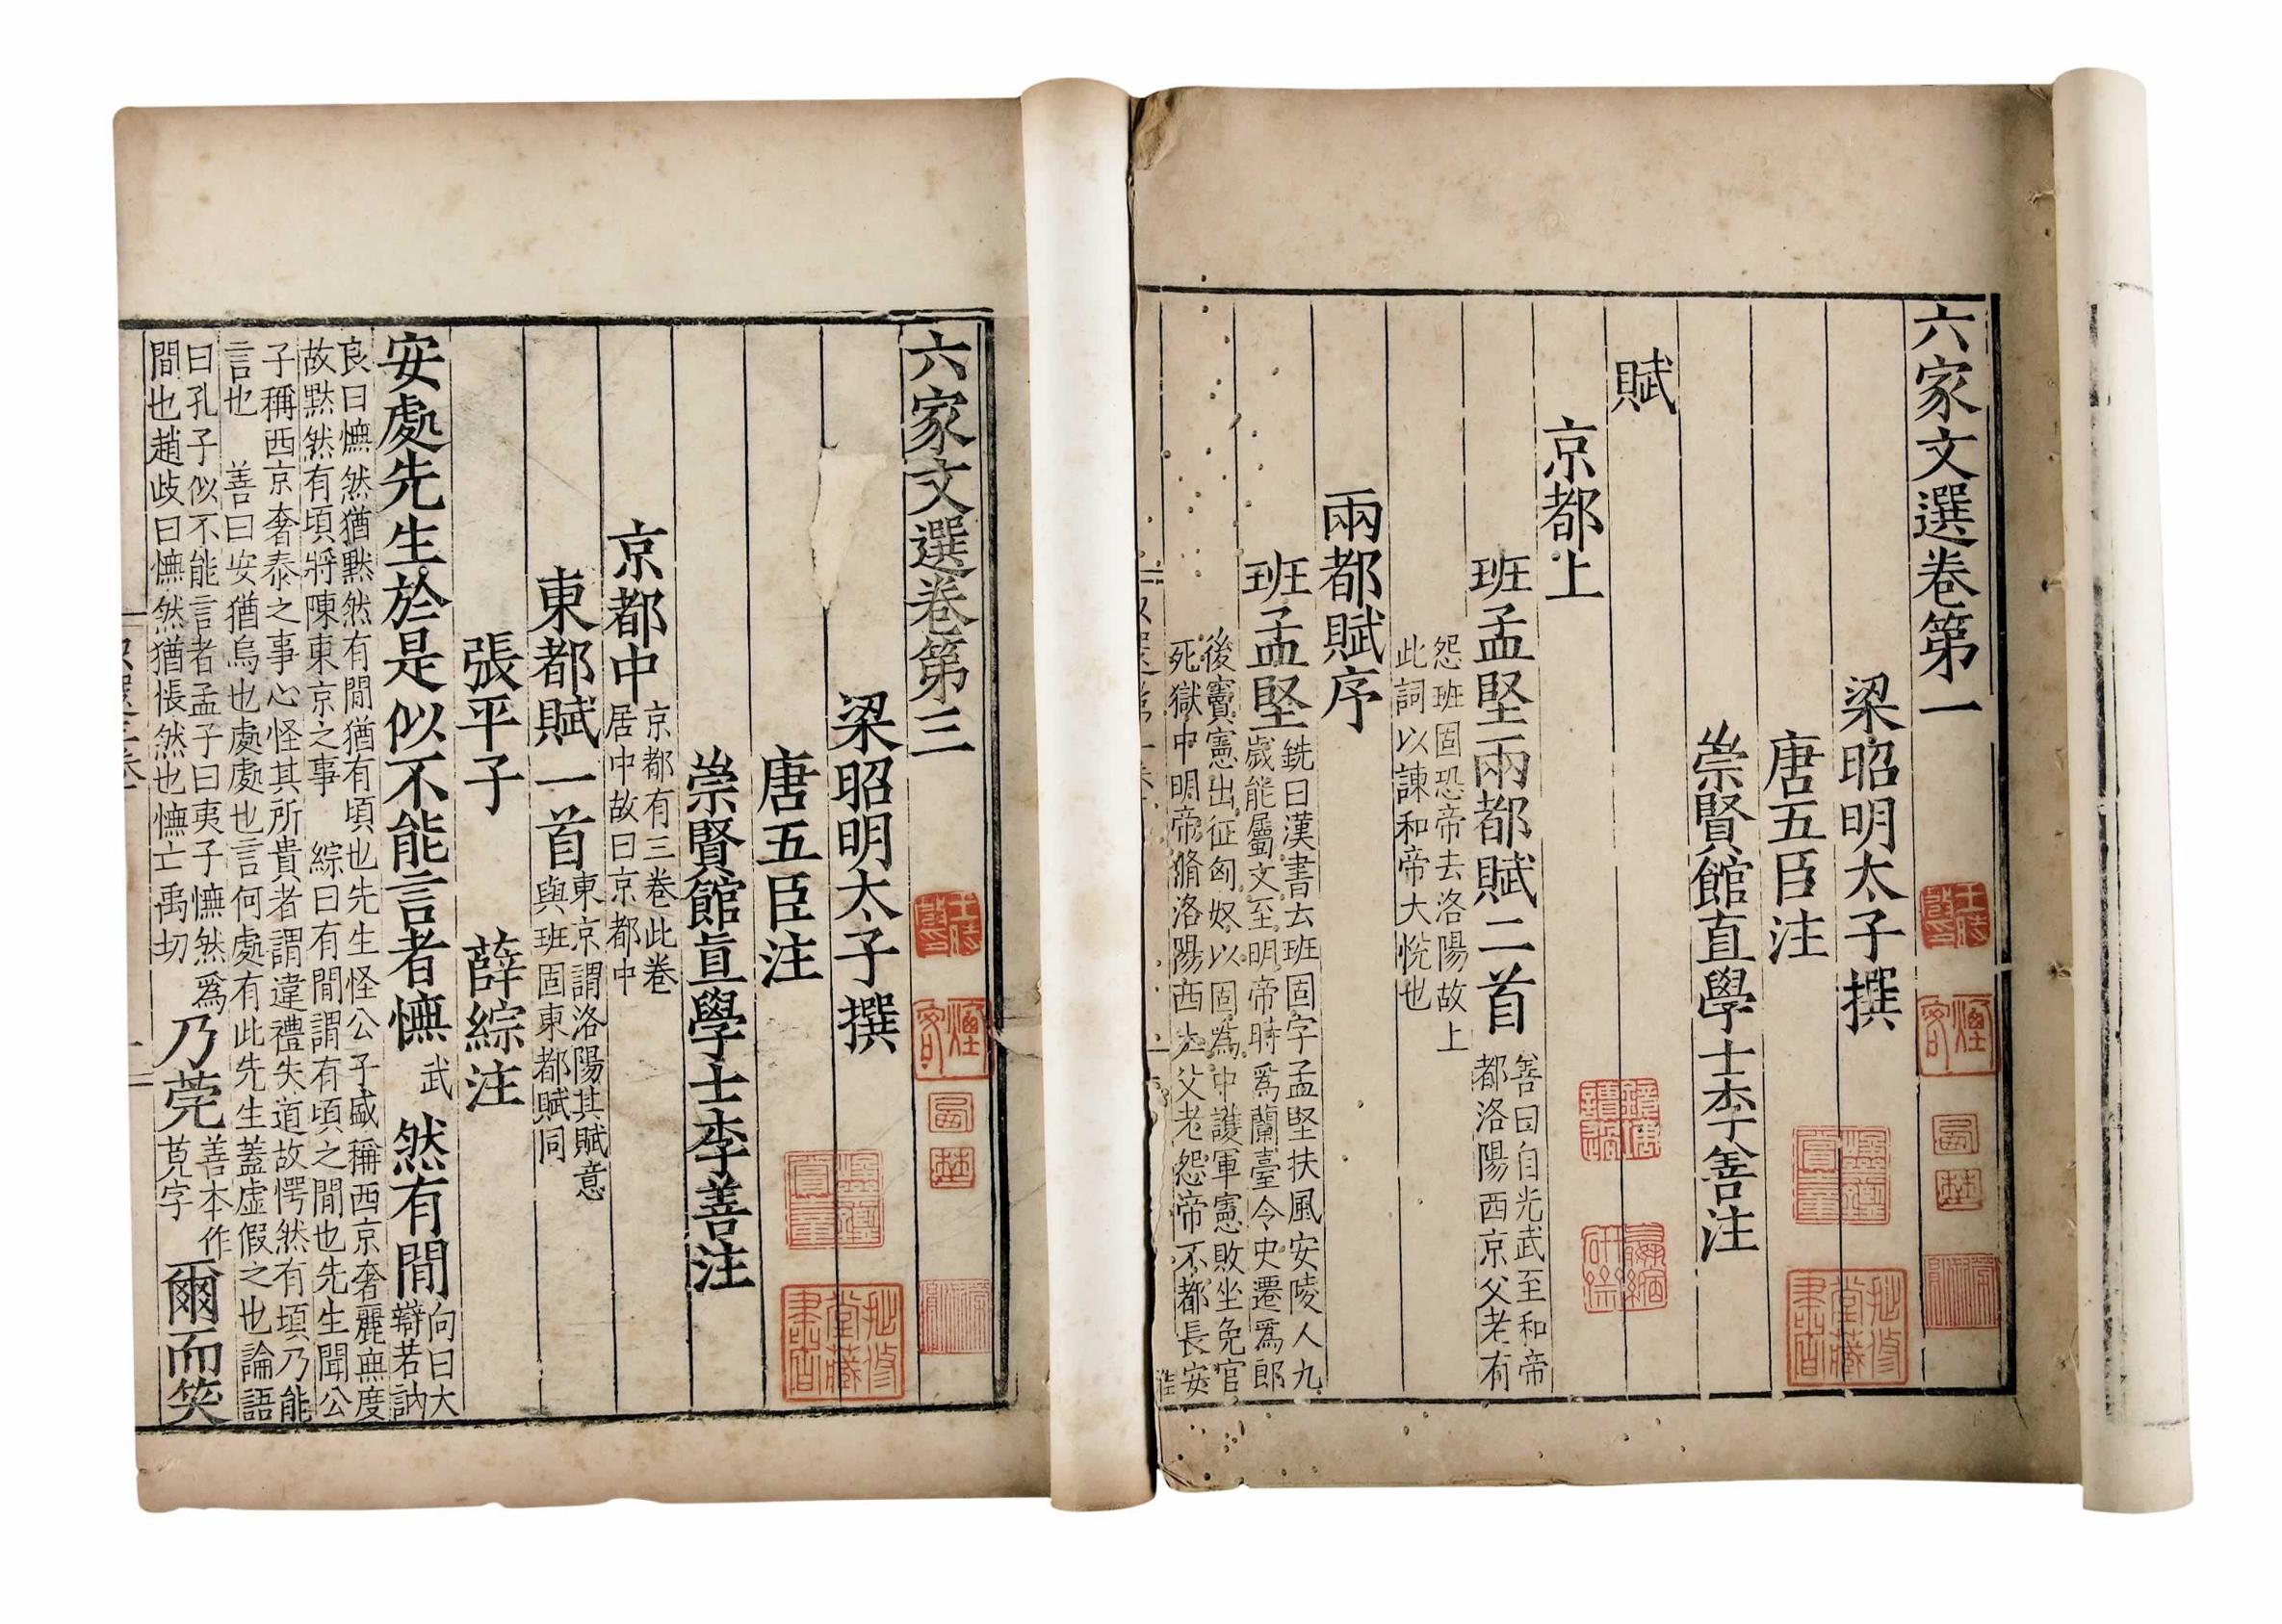 六家文選卷第一
梁昭明太子撰
唐五臣注
崇賢館直學士李善注
賦
京都上
班孟堅兩都賦二首
善曰自光武至和帝
都洛陽西京父老有
怨班固恐帝去洛陽故上
此詞以諫和帝大悅也
兩都賦序
班孟堅
銑曰漢書云班固字孟堅扶風安陵人九
歲能屬文至明帝時爲蘭臺令史遷爲郎
後竇憲出征匈奴以固爲中護軍憲敗坐免官
死獄中明帝脩洛陽西土父老怨帝不都長安
六家文選卷第三
梁昭明太子撰
唐五臣注
崇賢館直學士李善注
京都中
京都有三卷此卷
居中故曰京都中
東都賦一首
東京謂洛陽其賦意
與班固東都賦同
張平子
薛綜注
安處先生於是似不能言者憮
武
然有閒
向曰大
辯若訥
良曰憮然猶黙然有閒猶有頃也先生怪公子盛稱西京奢麗無度
故黙然有頃將陳東京之事 綜曰有閒謂有頃之閒也先生聞公
子稱西京奢泰之事心怪其所貴者謂違禮失道故愕然有頃乃能
言也 善曰安猶烏也處處也言何處有此先生蓋虛假之也論語
曰孔子似不能言者孟子曰夷子憮然爲
間也趙歧曰憮然猶悵然也憮亡禹切
乃莞
善本作
莧字
爾而笑